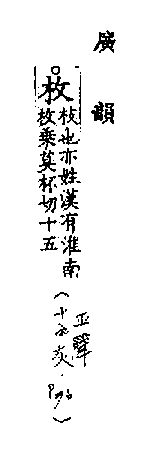 廣韻
枚
枝也亦姓漢有淮南
枚乘莫杯切十五
（十五灰·P96）